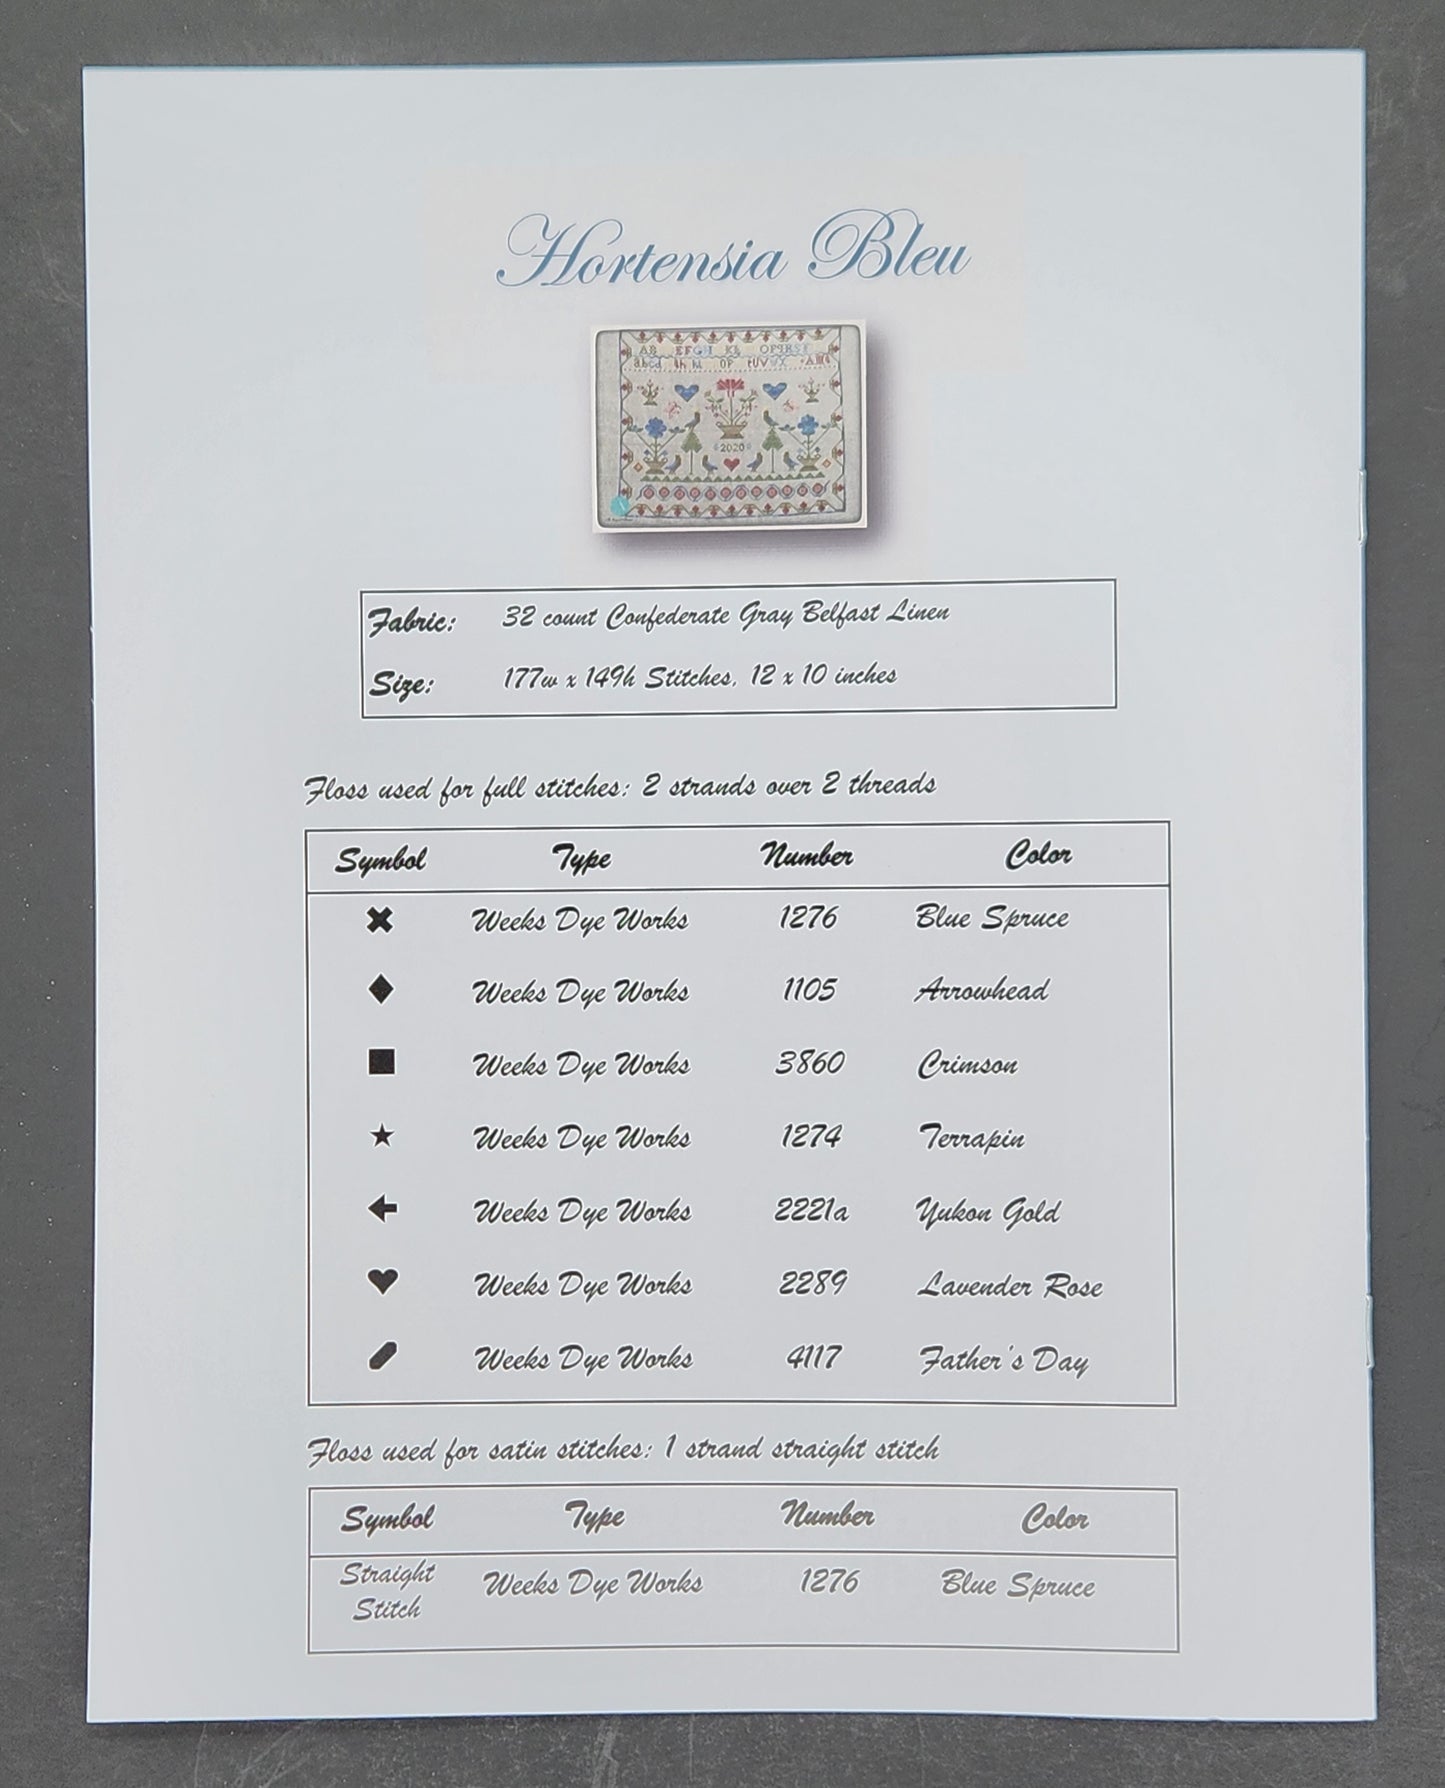 Hortensia Bleu
2020
Fabric: 32 count Confederate Gray Belfast Linen
Size: 177w x 149h Stitches, 12 x 10 inches
Floss used for full stitches: 2 strands over 2 threads
Symbol Type Number Color
Weeks Dye Works 1276 Blue Spruce
Weeks Dye Works 1105 Arrowhead
Weeks Dye Works 3860 Crimson
Weeks Dye Works 1274 Terrapin
Weeks Dye Works 2221a Yukon Gold
Weeks Dye Works 2289 Lavender Rose
Weeks Dye Works 4117 Father's Day
Floss used for satin stitches: 1 strand straight stitch
Symbol Type Number Color
Straight Weeks Dye Works 1276 Blue Spruce
Stitch